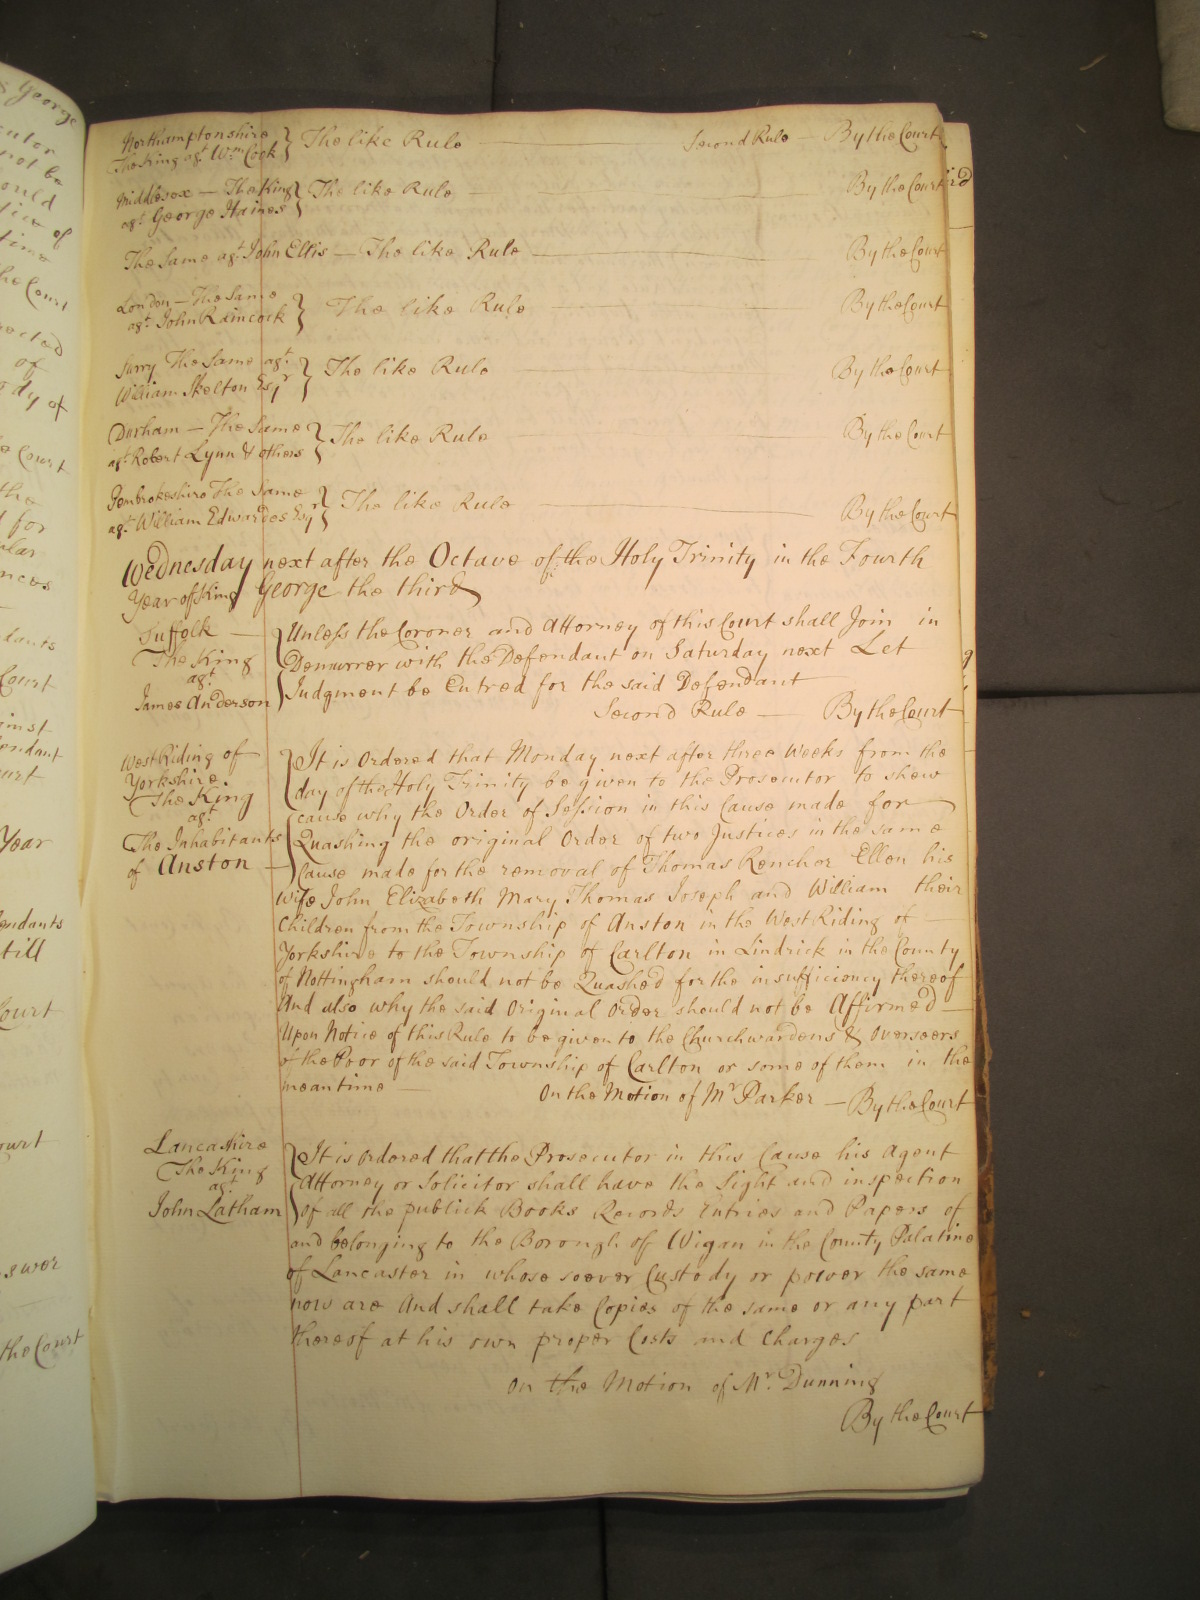 Northamptonshire
The King agt Wm Cook } The like Rule — Second Rule — By the Court
Middlesex — The King
agt George Haines } The like Rule — By the Court
The Same agt John Ellis — The like Rule — By the Court
London — The Same
agt John Raincock } The like Rule — By the Court
Surry The Same agt
William Skelton Esqr } The like Rule — By the Court
Durham — The Same
agt Robert Lynn & others } The like Rule — By the Court
Pembrokeshire The Same
agt William Edwardes Esqr } The like Rule — By the Court
Wednesday next after the Octave of the Holy Trinity in the Fourth
Year of King George the third
Suffolk —
The King
agt
James Anderson
Unless the Coroner and Attorney of this Court shall Join in
Demurrer with the Defendant on Saturday next Let
Judgment be Entred for the said Defendant
Second Rule — By the Court
West Riding of
Yorkshire.
The King
agt
The Inhabitants
of Anston —
It is Ordered that Monday next after three Weeks from the
day of the Holy Trinity be given to the Prosecutor to shew
cause why the Order of Session in this Cause made for
Quashing the original Order of two Justices in the same
Cause made for the removal of Thomas Rencher Ellen his
wife John Elizabeth Mary Thomas Joseph and William their
Children from the Township of Anston in the West Riding of —
Yorkshire to the Township of Carlton in Lindrick in the County
of Nottingham should not be Quashed for the insufficiency thereof
And also why the said Original Order should not be Affirmed —
Upon Notice of this Rule to be given to the Churchwardens & Overseers
of the Poor of the said Township of Carlton or some of them in the
meantime — On the Motion of Mr Parker — By the Court
Lancashire
The King
agt
John Latham
It is ordered that the Prosecutor in this Cause his Agent
Attorney or Solicitor shall have the Sight and inspection
of all the publick Books Records Entries and Papers of
and belonging to the Borough of Wigan in the County Palatine
of Lancaster in whose soever Custody or power the same
now are And shall take Copies of the same or any part
thereof at his own proper Costs and Charges
On the Motion of Mr. Dunning
By the Court